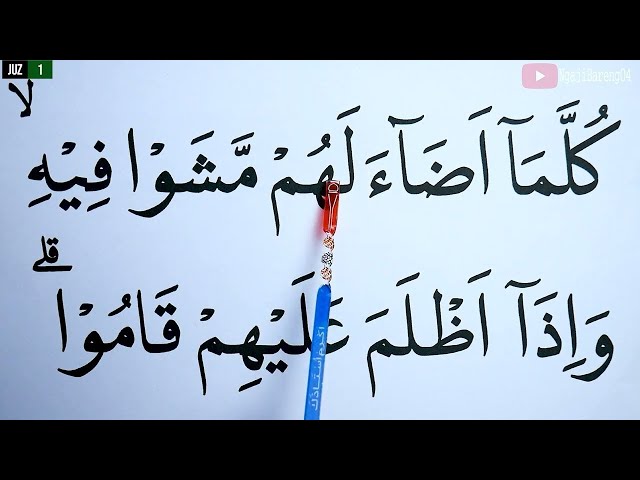 JUZ 1
NgajiBareng04
لا
كُلَّمَآ اَضَآءَ لَهُمْ مَّشَوْا فِيْهِ
قلے
وَاِذَآ اَظْلَمَ عَلَيْهِمْ قَامُوْا